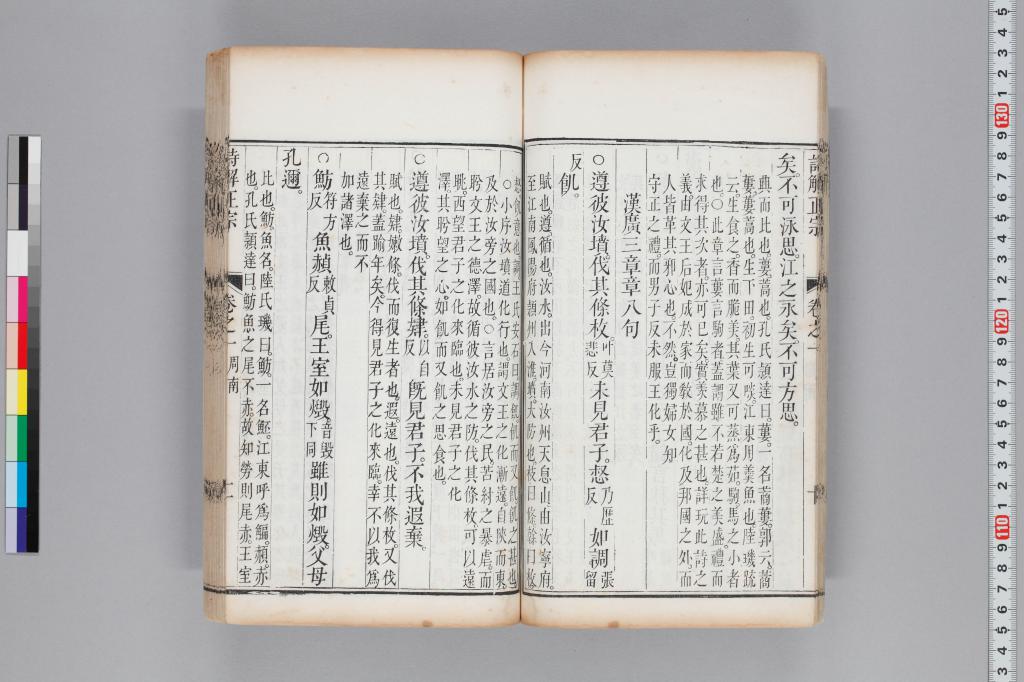 矣。不可泳思。江之永矣。不可方思。
興而比也。蔞。蒿也。孔氏頴達曰。蔞。一名蔏蔞。郭云。蔏
蔞。蔞蒿也。生下田。初生可啖。江東用羹魚也。陸璣疏
云。生食之。香而脆美。其葉又可蒸爲茹。駒。馬之小者
也。○此章言蔞言駒者。蓋謂雖不若楚之美盛。禮而
求得其次者。亦可已矣。實羨慕之甚也。詳玩此詩之
義。由文王后妃成於家。而敎於國。化及邪國之外。而
人皆革其邪心也。不然。豈獨婦女知
守正之禮。而男子反未服王化乎。
漢廣三章章八句
○遵彼汝墳。伐其條枚。叶莫悲反未見君子。惄乃歷反如調張留
反飢。
賦也。遵。循也。汝水。出今河南汝州天息山。由汝寧府。
至江南鳳陽府潁州入淮。墳。大防也。枝曰條。榦曰枚。
○小序。汝墳。道化行也。謂文王之化漸遠。自陝而東。
及於汝旁之國也。○言居汝旁之民。苦紂之暴虐。而
聆文王之德澤。故循彼汝水之防。伐其條枚。可以遠
眺。西望君子之化來臨也。未見君子之化
澤。其聆望之心。如飢而又飢之思食也。
○遵彼汝墳。伐其條肄。以自反旣見君子。不我遐棄。
賦也。肄。嫩條。伐而復生者也。遐。遠也。伐其條枚。又伐
其肄。蓋踰年矣。今得見君子之化來臨。幸不以我爲
遠棄之。而不
加諸澤也。
○魴符方反魚赬敕貞反尾。王室如燬。音毀下同雖則如燬。父母
孔邇。
比也。魴。魚名。陸氏璣曰。魴。一名魾。江東呼爲鯿。赬。赤
也。孔氏頴達曰。魴魚之尾不赤。故知勞則尾赤。王室
詩解正宗
卷之一
周南
十一